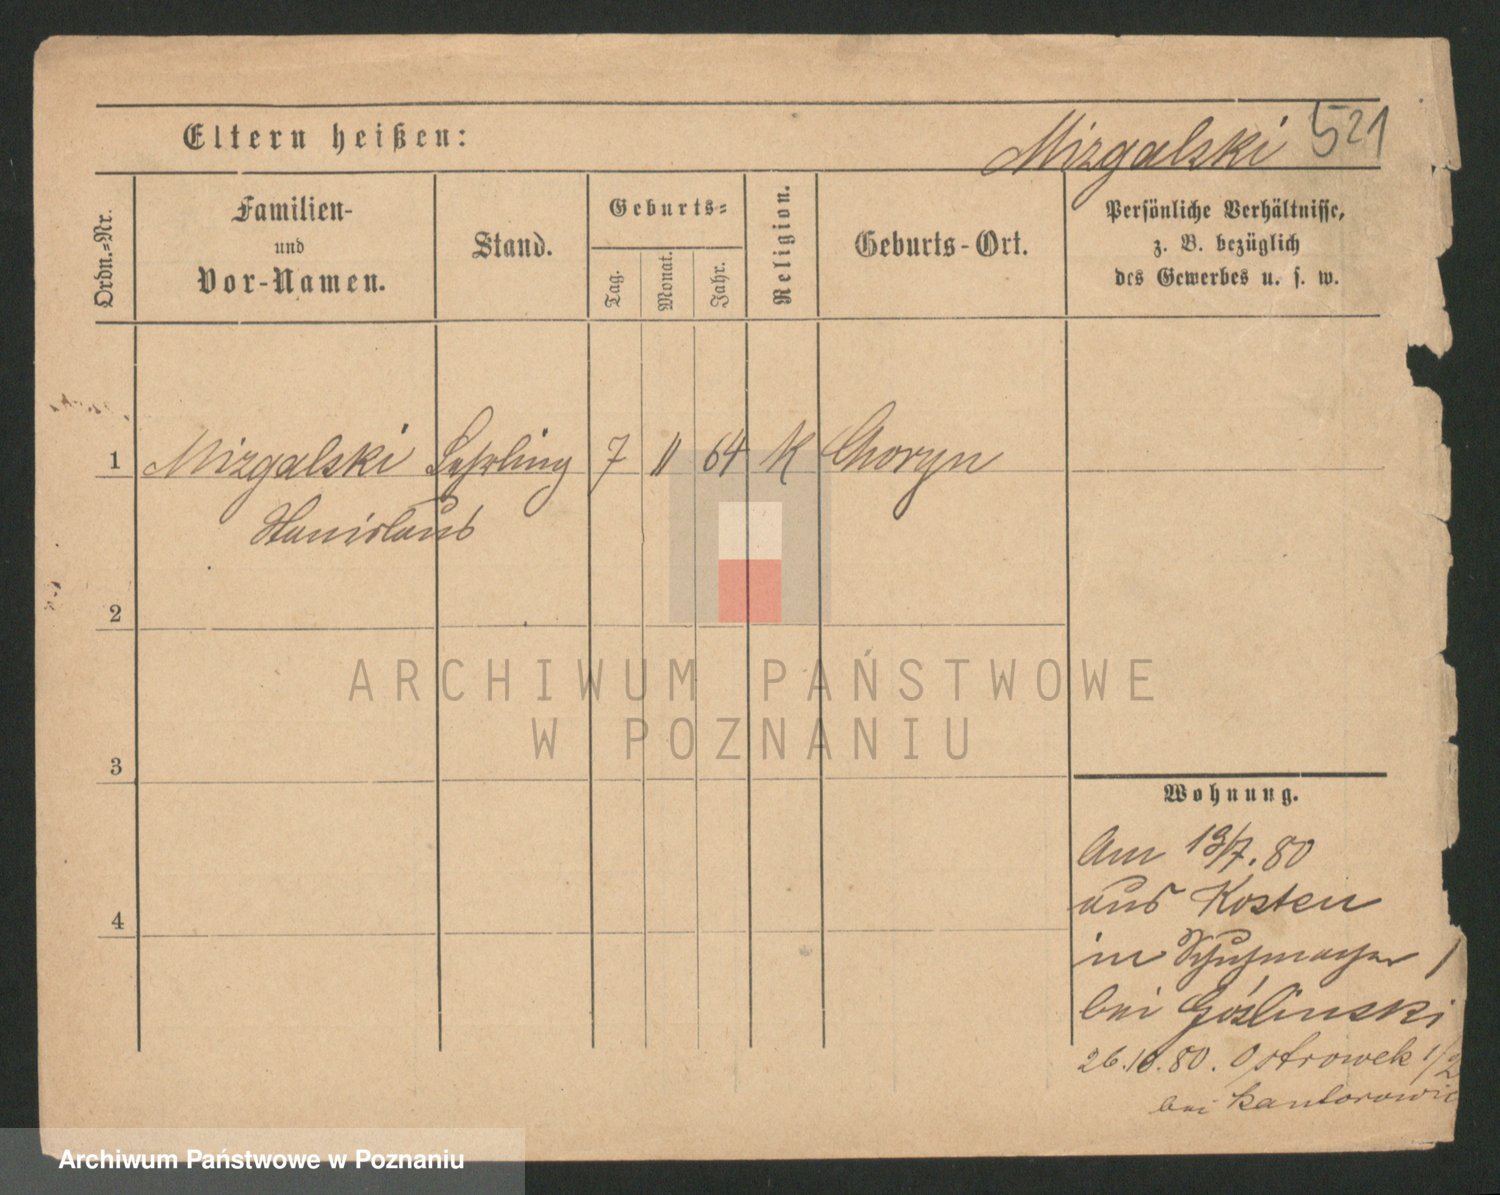 Eltern heißen:
Mizgalski 521
Ordn.=Nr.
Familien-
und
Vor-Namen.
Stand.
Geburts=
Tag.
Monat.
Jahr.
Religion.
Geburts-Ort.
Persönliche Verhältnisse,
z. B. bezüglich
des Gewerbes u. s. w.
1 Mizgalski Lehrling 7 11 64 K Choryn
Stanislaus
2
3
4
Wohnung.
Am 13/7. 80
aus Kosten
in
bei Gośliński
26.10.80. Ostrowek 1/2
bei Kantorowic
ARCHIWUM PAŃSTWOWE
W POZNANIU
Archiwum Państwowe w Poznaniu